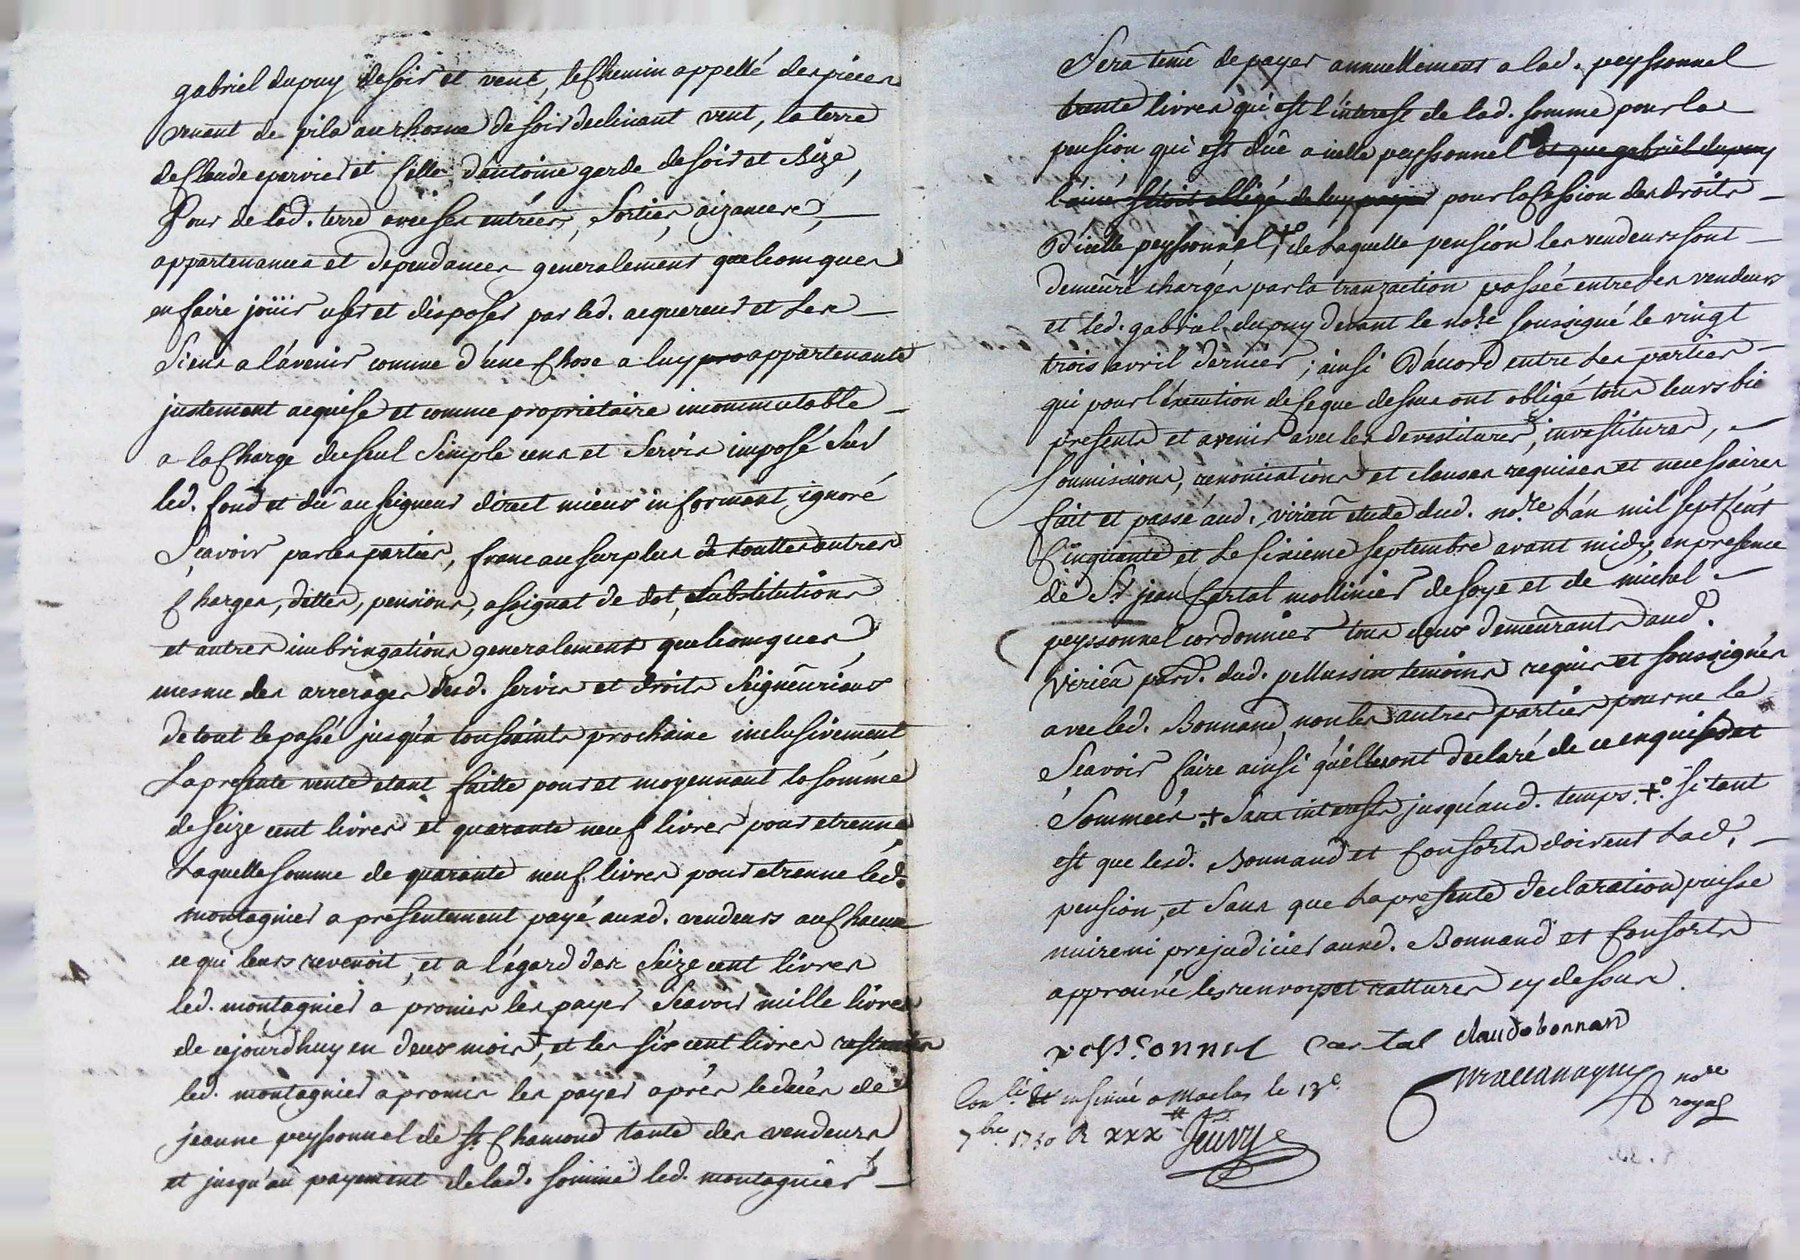 gabriel dupuy de soir et vent, le Chemin appellé des pieces
venant de pila au rhosne de soir declinant vent, la terre
de Claude epervier et celle d'antoine garde de soir et Bize,
Pour de lad. terre avec ses entrées, sorties, aizances,
appartenances et dependances generalement quelconques
en faire joüir user et disposer par led. acquereur et les
siens a l'avenir comme d'une Chose a luy pro appartenante
justement acquise et comme proprietaire incommutable
a la Charge du seul simple cens et servis imposé sur
led. fond et dû au seigneur direct mieux informant, ignoré
Scavoir par les parties, franc au surplus de touttes autres
Charges, dettes, pensions, assignat de dot, substitutions
et autres imbringations generalement quelconques,
mesme des arrerages desd. servis et droits Seigneuriaux
de tout le passé jusqu'a toussaints prochaine inclusivement
La presente vente etant faitte pour et moyennant la somme
de seize cent livres et quarante neuf livres pour etrenne
Laquelle somme de quarante neuf livres pour etrenne led.
montagnier a presentement payé auxd. vendeurs a Chacun
ce qui leurs revenoit, et a l'égard des seize cent livres
led. montagnier a promis les payer Scavoir mille livres
de cejourdhuy en deux mois +, et les six cent livres restantes
led. montagnier a promis les payer aprés le decés de
jeanne peyssonnel de St Chamond tante des vendeurs
et jusqu'au payement de lad. somme led. montagnier
Sera tenu de payer annuellement a lad. peyssonnel
trente livres qui est l'interest de lad. somme pour la
pension qui est dûe a icelle peyssonnel et que gabriel dupuy
l'ainé s'etoit obligé de luy payer pour la Cession des droits
D'icelle peyssonnel +° de Laquelle pension les vendeurs sont
demeuré chargés par la tranzaction passée entre les vendeurs
et led. gabriel dupuy devant le nore soussigné le vingt
trois avril dernier ; ainsi D'acord entre Les parties
qui pour l'éxécution de ce que dessus ont obligé tous leurs bie
presents et avenir avec les devestitures, investitures,
soumissions, renonciations et clauses requises et necessaires
fait et passé aud. virieu etude dud. nore L'an mil sept cent
Cinquante et Le sixieme septembre avant midy, en presence
de Sr jean Cartal mollinier de soye et de michel
peyssonnel cordonnier tous deux demeurants aud.
Virieu par. dud. pellussin temoins requis et soussignés
avec led. Bonnand, non les autres parties pour ne le
scavoir faire ainsi qu'elles ont declaré de ce enquis et
Sommées + sans interests jusqu'aud. temps +° si tant
est que lesd. Bonnand et Consorts doivent Lad.
pension, et sans que La presente declaration puisse
nuire ni prejudicier auxd. Bonnand et Consorts
approuvé les renvoys et rattures cy dessus.
peyssonnel Cartal claude bonnand
nore
royal
Conlé et insinué a Maclas le 13e
7bre 1750 R xxx